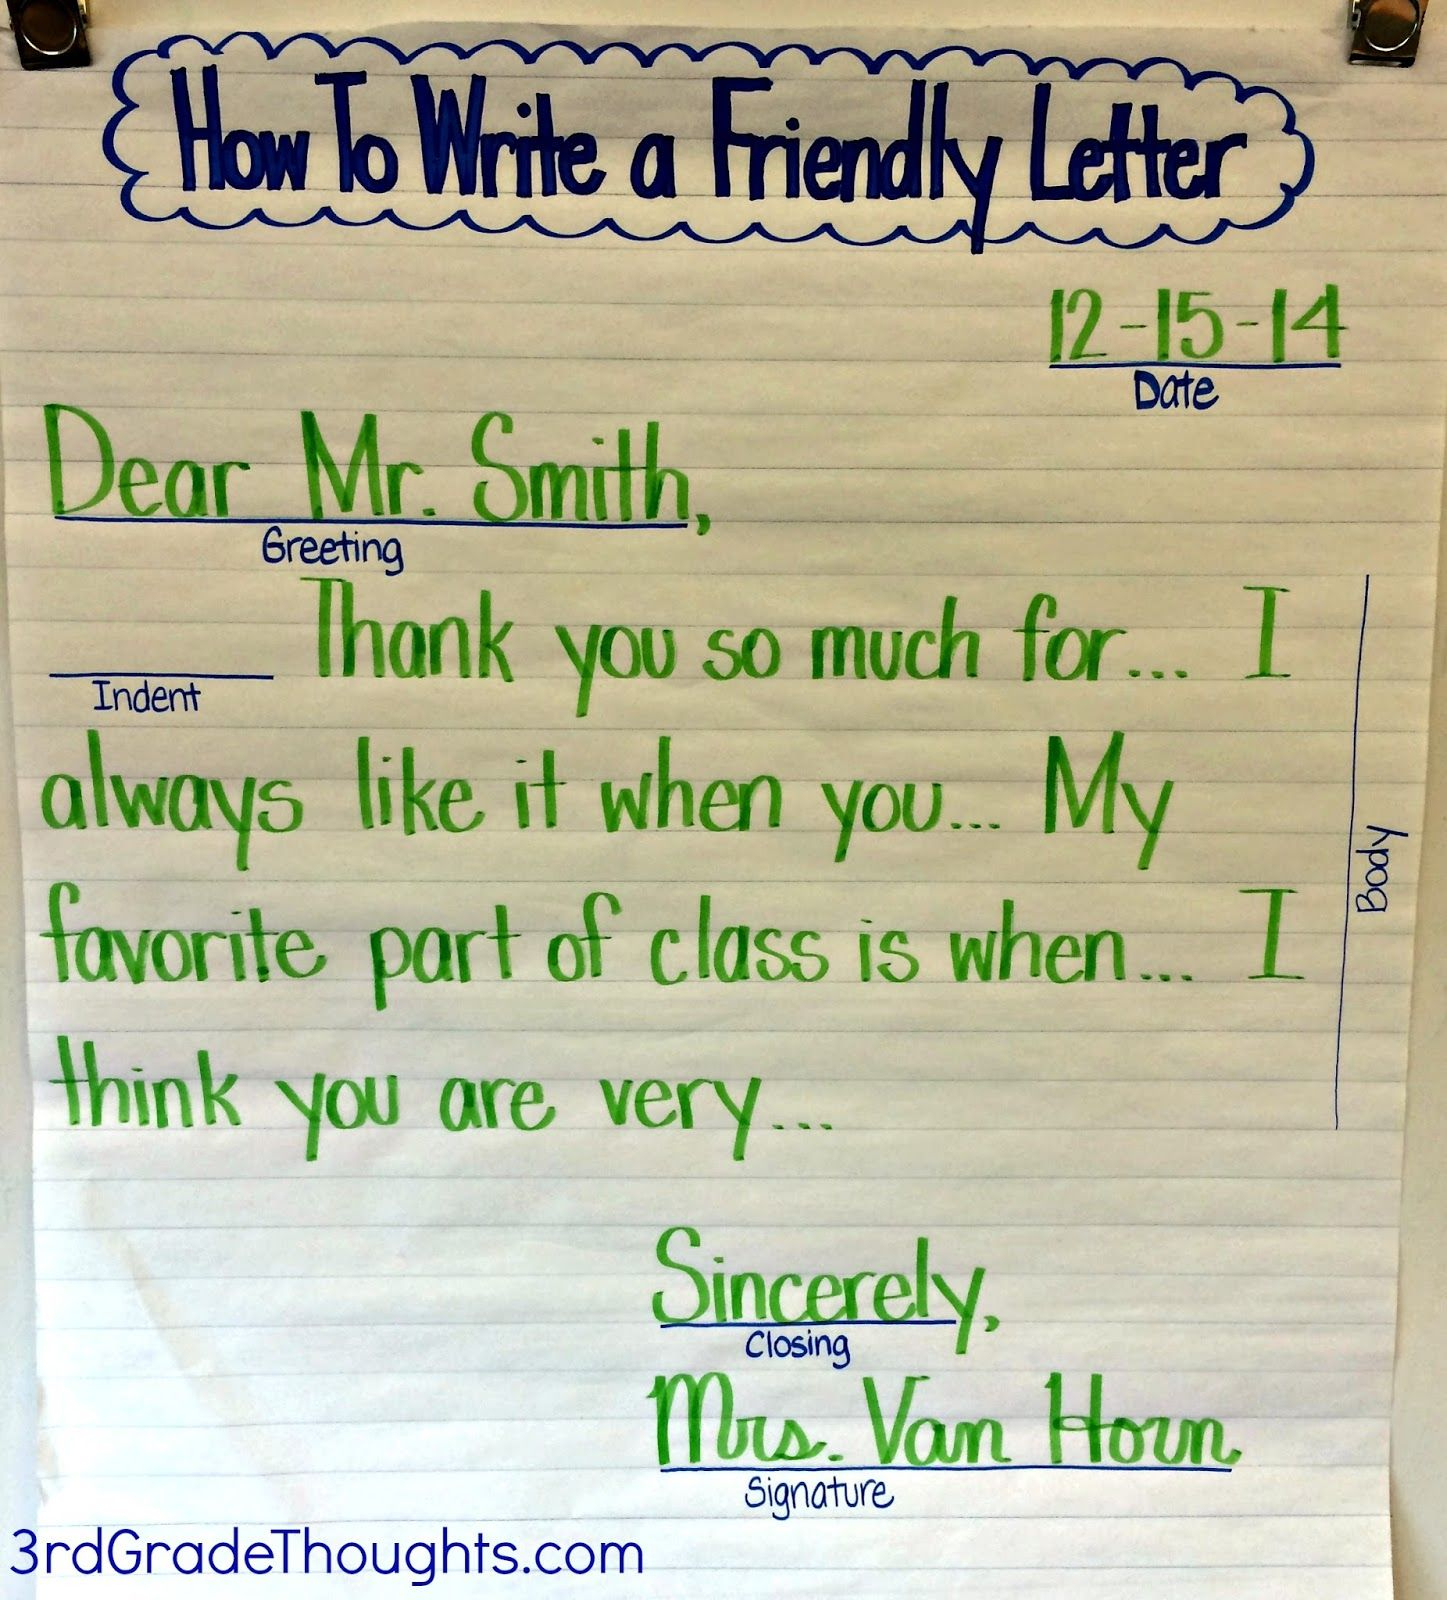 How To Write a Friendly Letter
12-15-14
Date
Dear Mr. Smith,
Greeting
Thank you so much for... I
Indent
always like it when you... My
Body
favorite part of class is when... I
think you are very...
Sincerely,
Closing
Mrs. Van Horn
Signature
3rdGradeThoughts.com